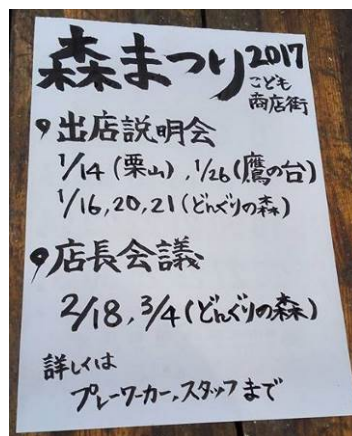 森まつり2017
こども
商店街
出店説明会
1/14(栗山),1/26(鷹の台)
1/16,20,21(どんぐりの森)
店長会議
2/18,3/4(どんぐりの森)
詳しくは
プレーワーカー,スタッフまで